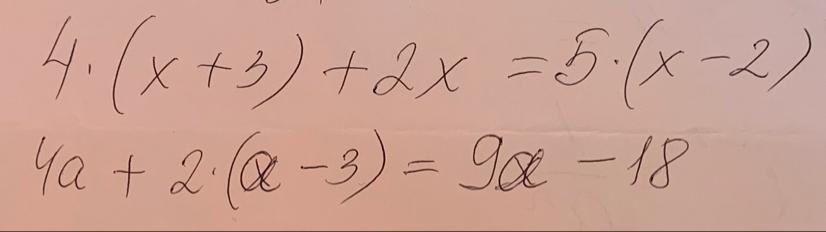 4·(x+3)+2x=5·(x-2)
4a+2·(a-3)=9a-18